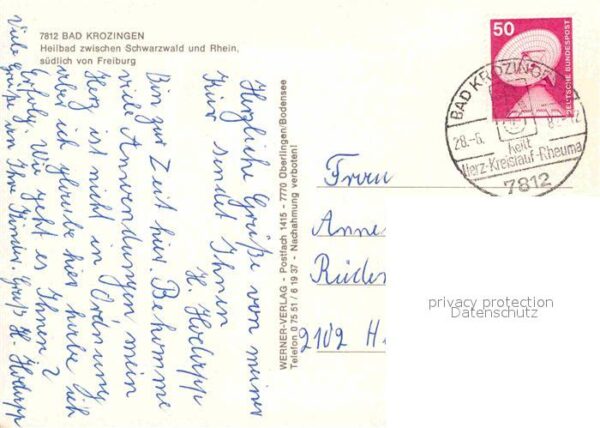 7812 BAD KROZINGEN
Heilbad zwischen Schwarzwald und Rhein,
südlich von Freiburg
Herzliche Grüße von meiner
Kur sendet Ihnen
H. Hodapp
Bin zur Zeit hier. Bekomme
viele Anwendungen mein
Herz ist nicht in Ordnung
aber ich glaube hier habe ich
Erfolg. Wie geht es Ihnen?
Viele Grüße an Ihre Kinder. Gruß H Hodapp
WERNER-VERLAG - Postfach 1415 - 7770 Überlingen/Bodensee
Telefon 0 75 51 / 6 19 37 - Nachahmung verboten!
50
DEUTSCHE BUNDESPOST
BAD KROZINGEN
28.-6.
heilt
Herz-Kreislauf-Rheuma
7812
Frau
Anne
Rüde
2102 H
privacy protection
Datenschutz